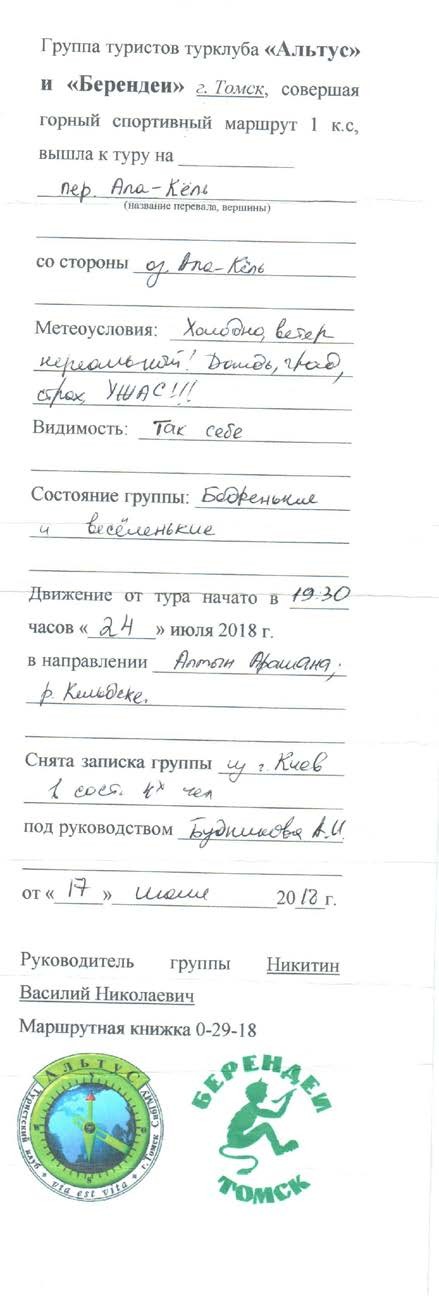 Группа туристов турклуба «Альтус»
и «Берендеи» г. Томск, совершая
горный спортивный маршрут 1 к.с,
вышла к туру на ____________
пер. Ала-Кёль
(название перевала, вершины)
со стороны оз. Ала-Кёль
Метеоусловия: Холодно, ветер
нереальный! Дождь, град,
страх, УЖАС!!!
Видимость: Так себе
Состояние группы: Бодренькие
и весёленькие
Движение от тура начато в 19:30
часов «24» июля 2018 г.
в направлении Алтын Арашана,
р. Кельдеке.
Снята записка группы из г. Киев
в сост. 4х чел
под руководством А.И.
от «17» июля 2018 г.
Руководитель группы Никитин
Василий Николаевич
Маршрутная книжка 0-29-18
АЛЬТУС
Туристский клуб • г. Томск СибГМУ
via est vita
БЕРЕНДЕИ
ТОМСК